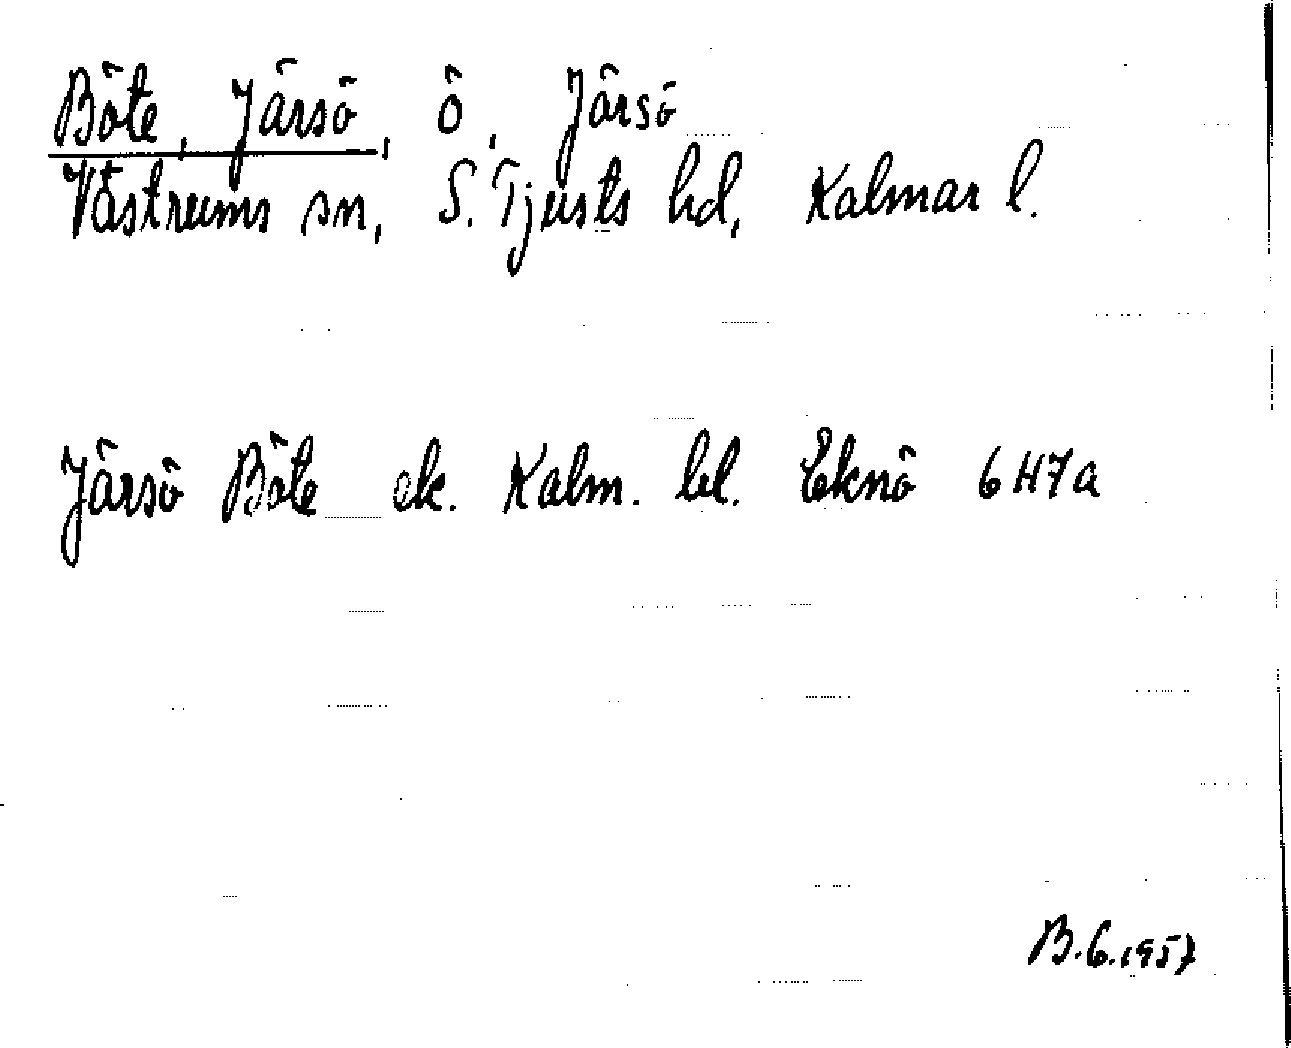 Böte, Järsö, ö, Järsö
Västrums sn, S. Tjusts hd, Kalmar l.
Järsö Böte ek. Kalm. bl. Eknö 6H7a
B.G. 1957